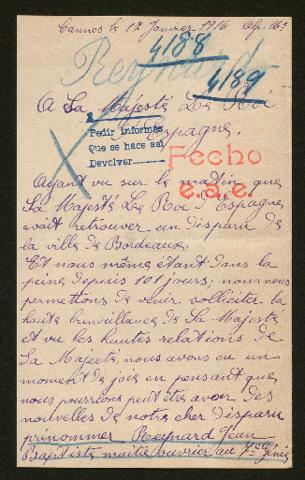 Cannes le 12 Janvier 1916 Alp. Mes
Reynard
4188
4189
A Sa Majesté Le Roi
d'Espagne.
Pedir informes
Que se hace así
Devolver
Fecho
e.a.e.
Ayant vu sur le matin que
Sa Majesté Le Roi d'Espagne
avait retrouver un disparu de
la ville de Bordeaux.
Et nous même étant dans la
peine depuis 101 jours, nour nous
permettons de venir solliciter la
haute bienveillance de Sa Majesté
et vu les hautes relations de
Sa Majesté, nous avons eu un
moment de joie en pensant que
nous pourrions peut être avoir des
nouvelles de notre cher disparu
prénommer Reynard Jean
Baptiste maître ouvrier au 7e Génie